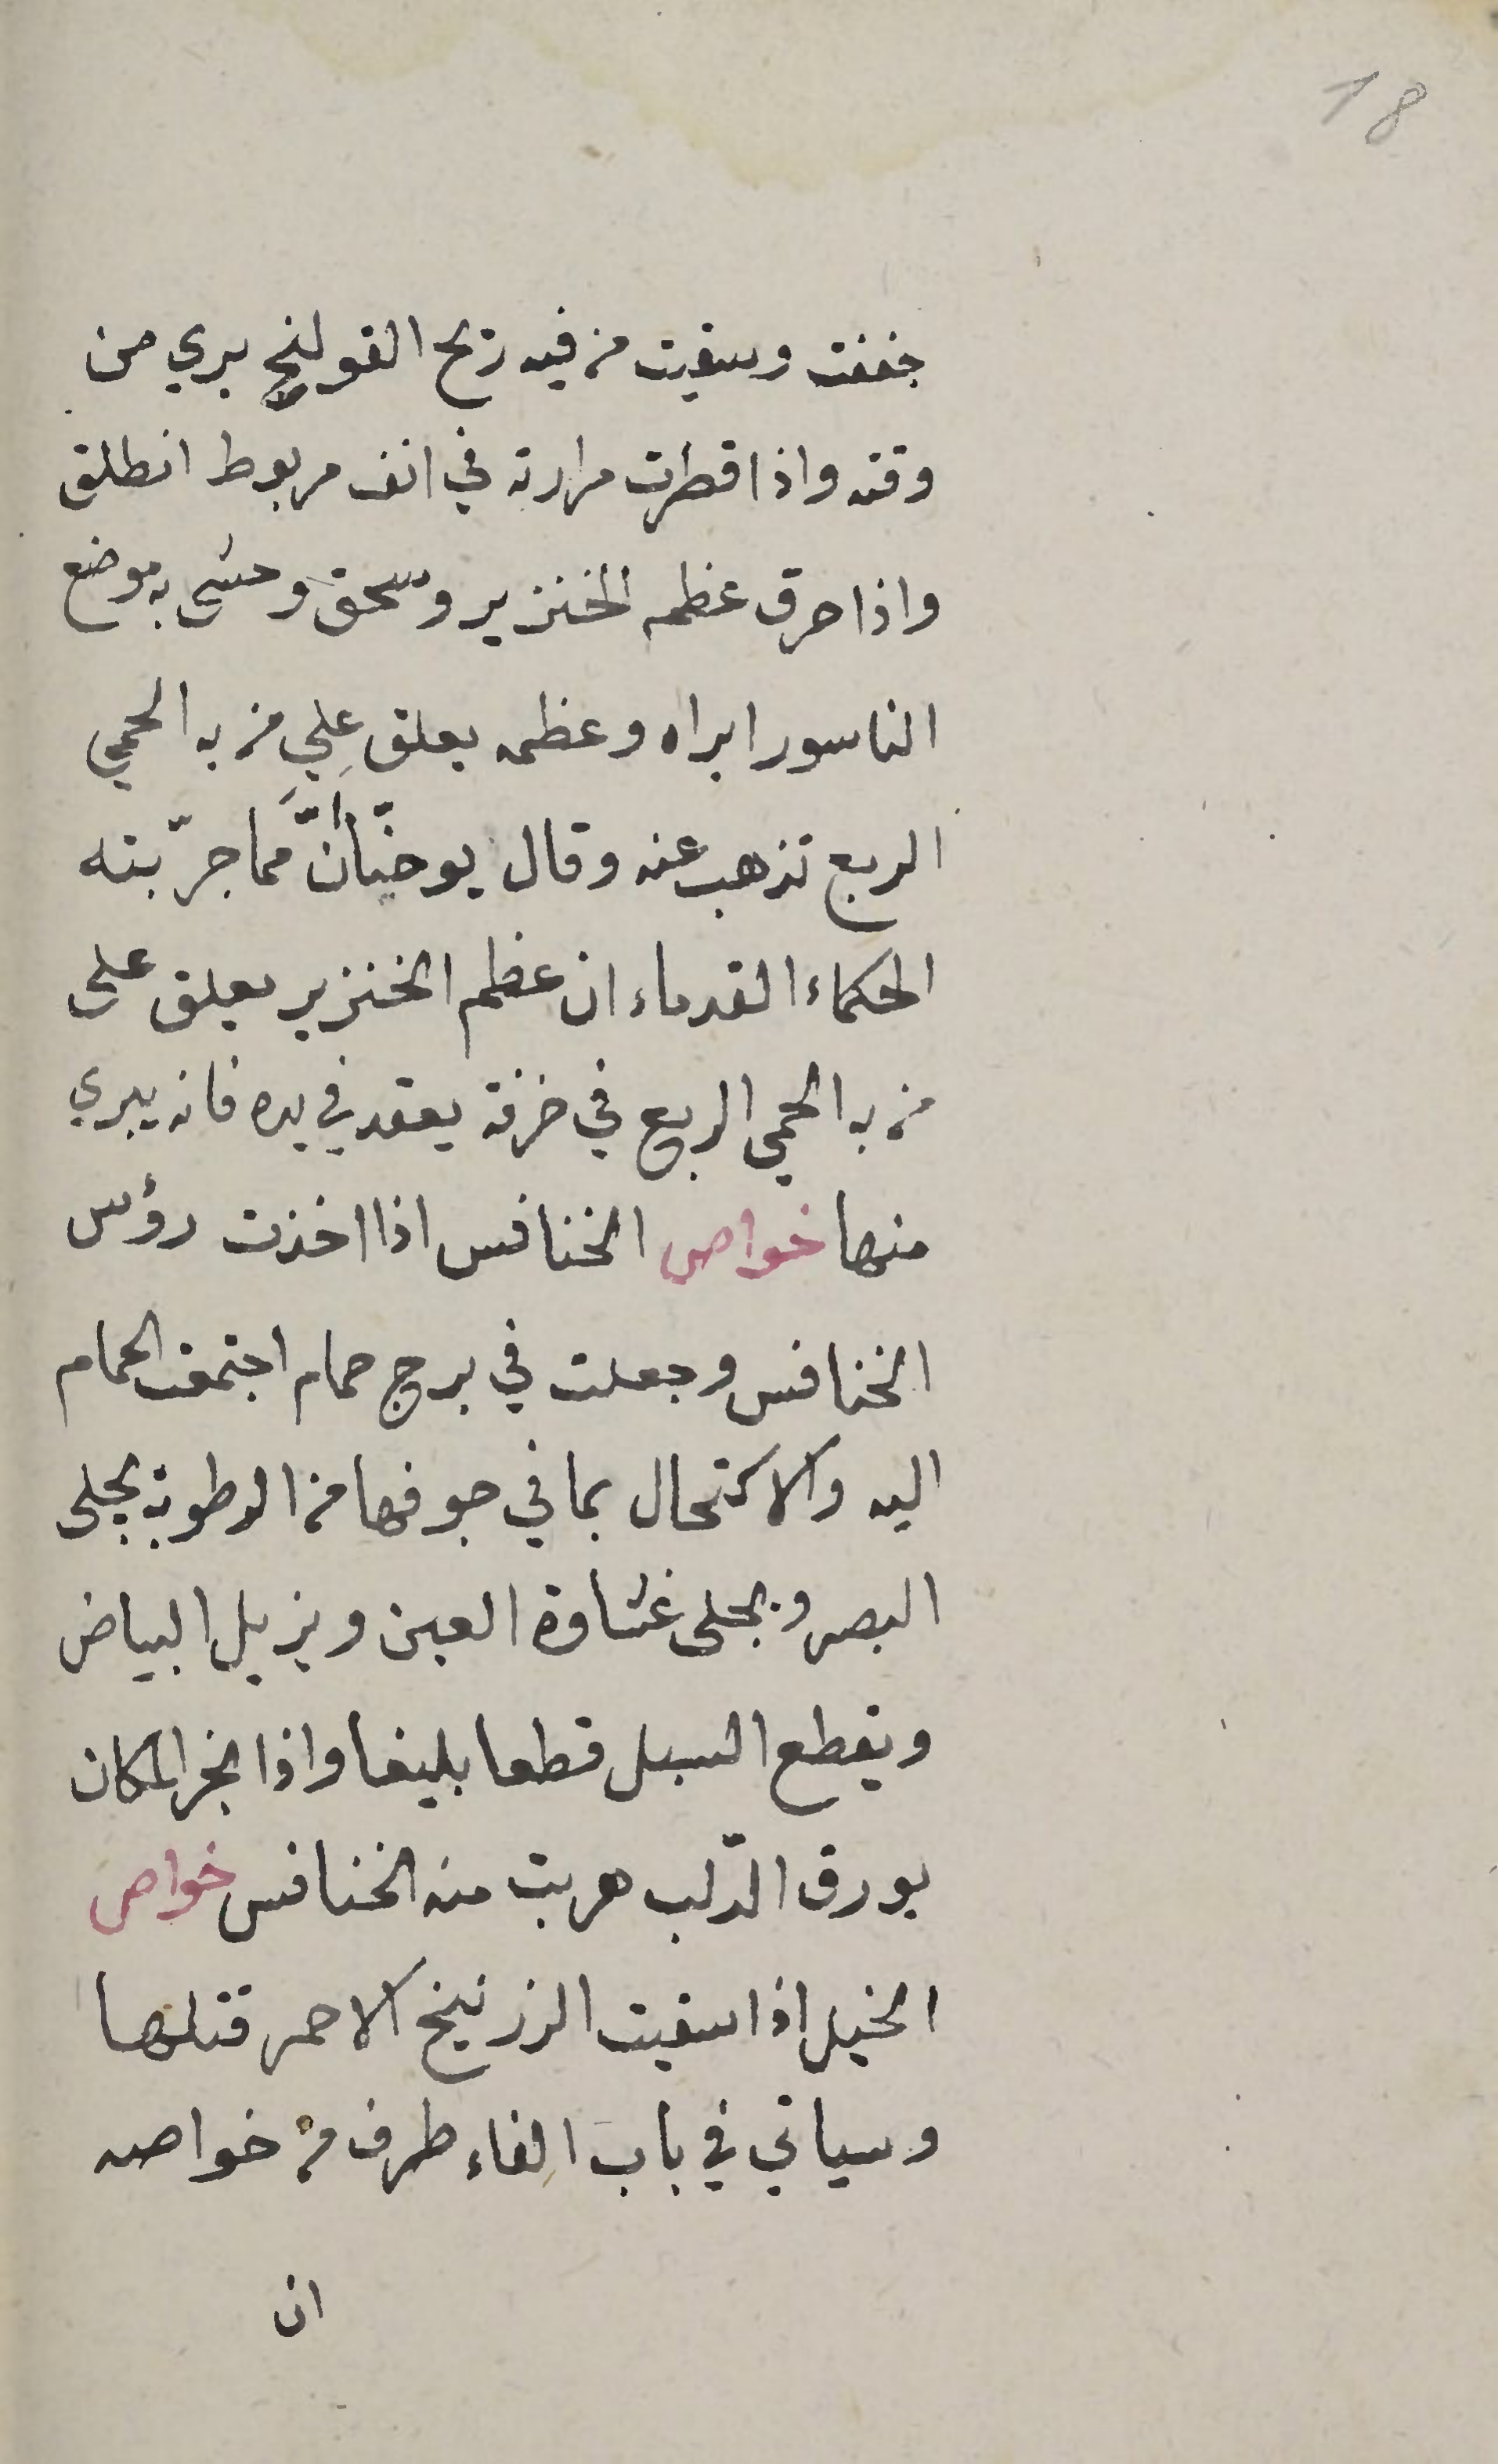 18
جففت وسقيت من فيه ريح القولنج بري من
وقته واذا قطرت مرارته في انف مربوط انطلق
واذا حرق عظم الخنزير وسحق وحشى به موضع
الناسور ابراه وعظمه يعلق علي من به الحمي
الربع تذهب عنه وقال يوحنّا أنّ مما جرّبته
الحكماء القدماء ان عظم الخنزير يعلق على
من به الحمي الربع في خرقة يعقد في يده فانه يبري
منها خواص الخنافس اذا اخذت رؤس
الخنافس وجعلت في برج حمام اجتمعت الحمام
اليه والاكتحال بما في جوفها من الرطوبة يجلى
البصر ويجلى غشاوة العين ويزيل البياض
ويقطع السبل قطعا بليغا واذا بخر المكان
بورق الدّلب هربت منه الخنافس خواص
الخيل اذا سقيت الزرنيخ الاحمر قتلها
وسياتي في باب الفاء طرف من خواصه
ان